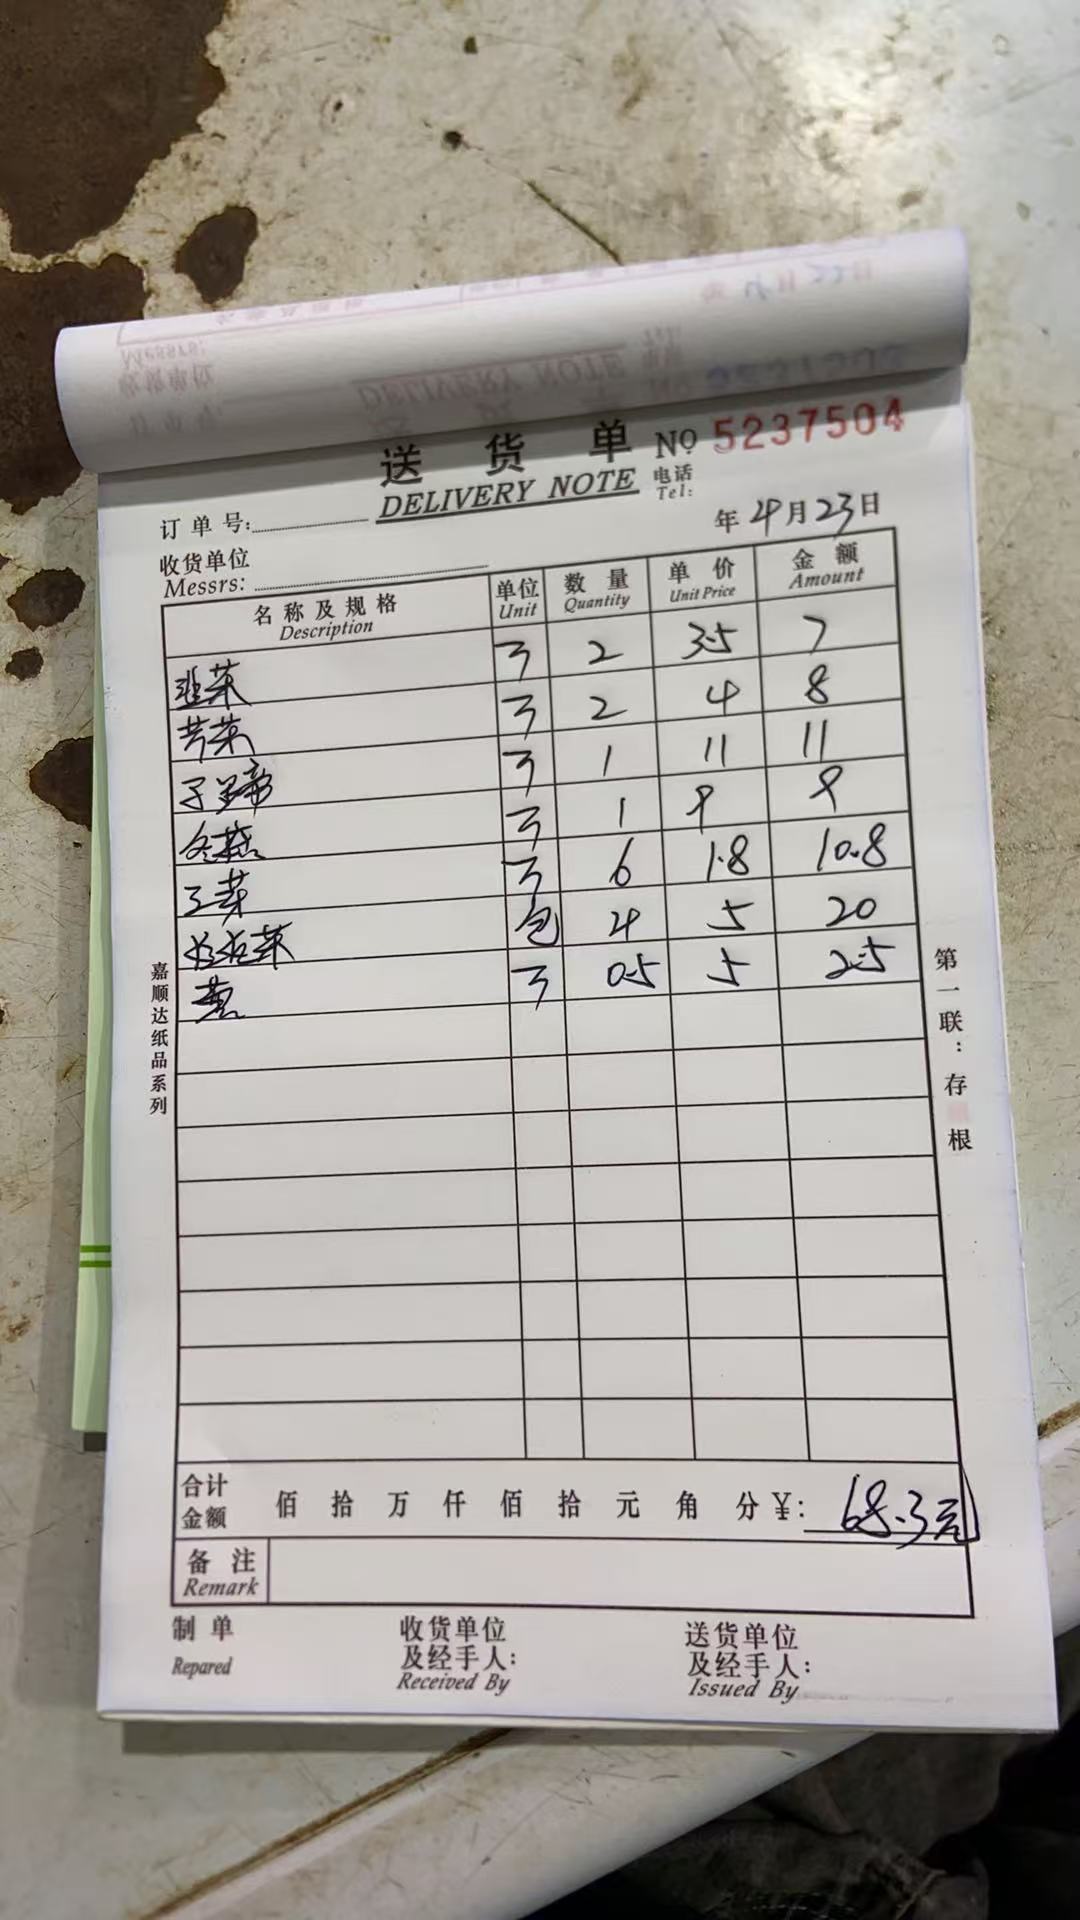 送 货 单 NO 5237504
DELIVERY NOTE 电话 Tel:
订 单 号: 年 4月23日
收货单位
Messrs:
名 称 及 规 格 单位 数 量 单 价 金 额
Description Unit Quantity Unit Price Amount
韭菜 2 3.5 7
芹菜 2 4 8
1 11 11
1 9 9
芽 6 1.8 10.8
菜 包 4 5 20
0.5 5 2.5
嘉顺达纸品系列
第一联：存根
合计 金额 佰 拾 万 仟 佰 拾 元 角 分 ¥: 68.3元
备 注
Remark
制 单 收货单位 送货单位
及经手人： 及经手人：
Repared Received By Issued By